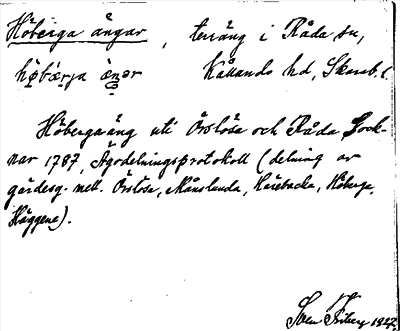 Höberga ängar, terräng i Råda sn,
Kållands hd, Skarab. l.
Höberga äng uti Örslösa och Råda Sock-
nar 1787, Ägodelningsprotokoll (delning av
gärdesg. mell. Örslösa, Månslunda, Harebacka, Höberga,
Häggene).
Sven Friberg